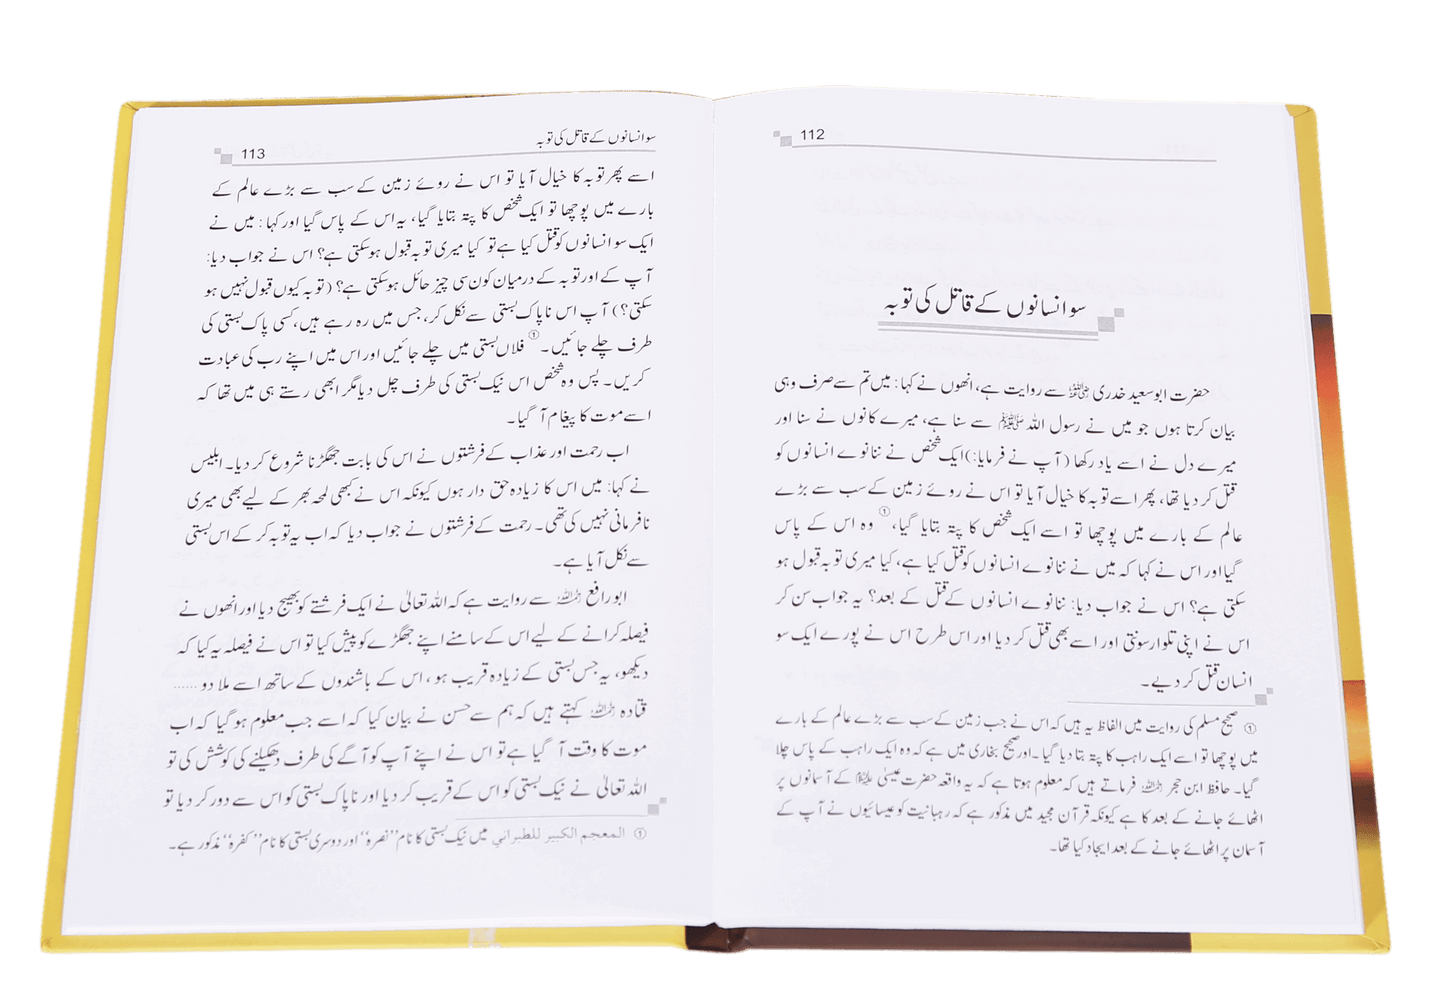 112
سو انسانوں کے قاتل کی توبہ
حضرت ابوسعید خدری رضی اللہ عنہ سے روایت ہے، انھوں نے کہا: میں تم سے صرف وہی
بیان کرتا ہوں جو میں نے رسول اللہ ﷺ سے سنا ہے، میرے کانوں نے سنا اور
میرے دل نے اسے یاد رکھا (آپ نے فرمایا:) ایک شخص نے ننانوے انسانوں کو
قتل کر دیا تھا، پھر اسے توبہ کا خیال آیا تو اس نے روئے زمین کے سب سے بڑے
عالم کے بارے میں پوچھا تو اسے ایک شخص کا پتہ بتایا گیا،① وہ اس کے پاس
گیا اور اس نے کہا کہ میں نے ننانوے انسانوں کو قتل کیا ہے، کیا میری توبہ قبول ہو
سکتی ہے؟ اس نے جواب دیا: ننانوے انسانوں کے قتل کے بعد؟ یہ جواب سن کر
اس نے اپنی تلوار سونتی اور اسے بھی قتل کر دیا اور اس طرح اس نے پورے ایک سو
انسان قتل کر دیے۔
① صحیح مسلم کی روایت میں الفاظ یہ ہیں کہ اس نے جب زمین کے سب سے بڑے عالم کے بارے
میں پوچھا تو اسے ایک راہب کا پتہ بتا دیا گیا۔ اور صحیح بخاری میں ہے کہ وہ ایک راہب کے پاس چلا
گیا۔ حافظ ابن حجر رحمہ اللہ فرماتے ہیں کہ معلوم ہوتا ہے کہ یہ واقعہ حضرت عیسیٰ علیہ السلام کے آسمانوں پر
اٹھائے جانے کے بعد کا ہے کیونکہ قرآن مجید میں مذکور ہے کہ رہبانیت کو عیسائیوں نے آپ کے
آسمان پر اٹھائے جانے کے بعد ایجاد کیا تھا۔
سو انسانوں کے قاتل کی توبہ
113
اسے پھر توبہ کا خیال آیا تو اس نے روئے زمین کے سب سے بڑے عالم کے
بارے میں پوچھا تو ایک شخص کا پتہ بتایا گیا، یہ اس کے پاس گیا اور کہا: میں نے
ایک سو انسانوں کو قتل کیا ہے تو کیا میری توبہ قبول ہوسکتی ہے؟ اس نے جواب دیا:
آپ کے اور توبہ کے درمیان کون سی چیز حائل ہوسکتی ہے؟ (توبہ کیوں قبول نہیں ہو
سکتی؟) آپ اس ناپاک بستی سے نکل کر، جس میں رہ رہے ہیں، کسی پاک بستی کی
طرف چلے جائیں۔① فلاں بستی میں چلے جائیں اور اس میں اپنے رب کی عبادت
کریں۔ پس وہ شخص اس نیک بستی کی طرف چل دیا مگر ابھی رستے ہی میں تھا کہ
اسے موت کا پیغام آ گیا۔
اب رحمت اور عذاب کے فرشتوں نے اس کی بابت جھگڑنا شروع کر دیا۔ ابلیس
نے کہا: میں اس کا زیادہ حق دار ہوں کیونکہ اس نے کبھی لمحہ بھر کے لیے بھی میری
نافرمانی نہیں کی تھی۔ رحمت کے فرشتوں نے جواب دیا کہ اب یہ توبہ کر کے اس بستی
سے نکل آیا ہے۔
ابورافع رحمہ اللہ سے روایت ہے کہ اللہ تعالیٰ نے ایک فرشتے کو بھیج دیا اور انھوں نے
فیصلہ کرانے کے لیے اس کے سامنے اپنے جھگڑے کو پیش کیا تو اس نے فیصلہ یہ کیا کہ
دیکھو، یہ جس بستی کے زیادہ قریب ہو، اس کے باشندوں کے ساتھ اسے ملا دو ......
قتادہ رحمہ اللہ کہتے ہیں کہ ہم سے حسن نے بیان کیا کہ اسے جب معلوم ہو گیا کہ اب
موت کا وقت آ گیا ہے تو اس نے اپنے آپ کو آگے کی طرف دھکیلنے کی کوشش کی تو
اللہ تعالیٰ نے نیک بستی کو اس کے قریب کر دیا اور ناپاک بستی کو اس سے دور کر دیا تو
① المعجم الكبير للطبراني میں نیک بستی کا نام ”نصرہ“ اور دوسری بستی کا نام ”کفرہ“ مذکور ہے۔